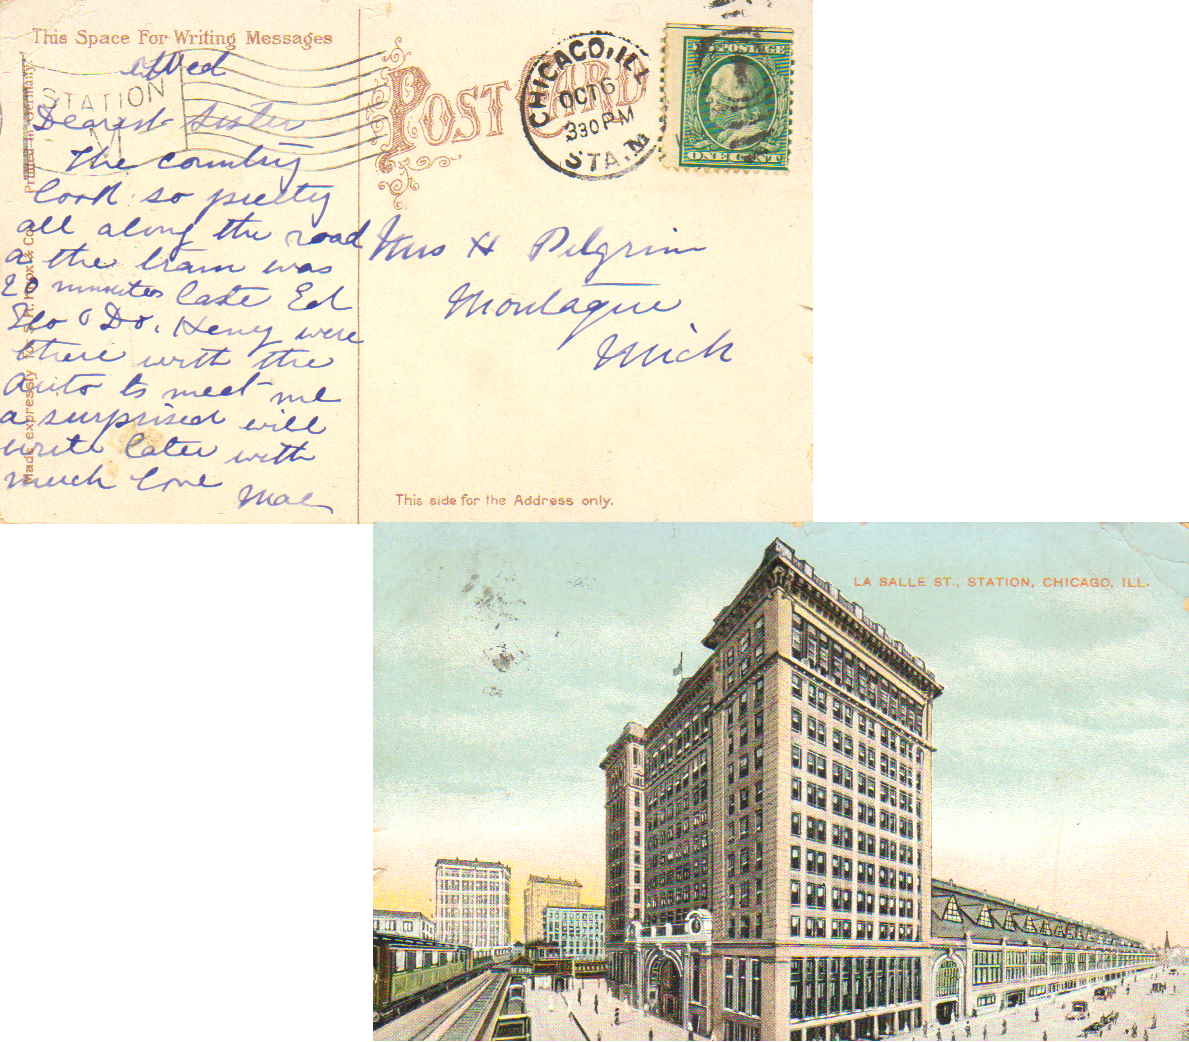 This Space For Writing Messages
Wed
Dearest Sister
The country
look so pretty
all along the road
a the train was
20 minutes late Ed
Flo & Do. Henry were
there with the
auto to meet me
a surprised will
write later with
much love
Mae
STATION
M
Printed in Germany.
Made expressly for S.H. Knox & Co.
POST CARD
CHICAGO, ILL
OCT 6
330 PM
STA. M
U.S. POSTAGE
ONE CENT
Mrs H Pilgrim
Montague
Mich
This side for the Address only.
LA SALLE ST., STATION, CHICAGO, ILL.